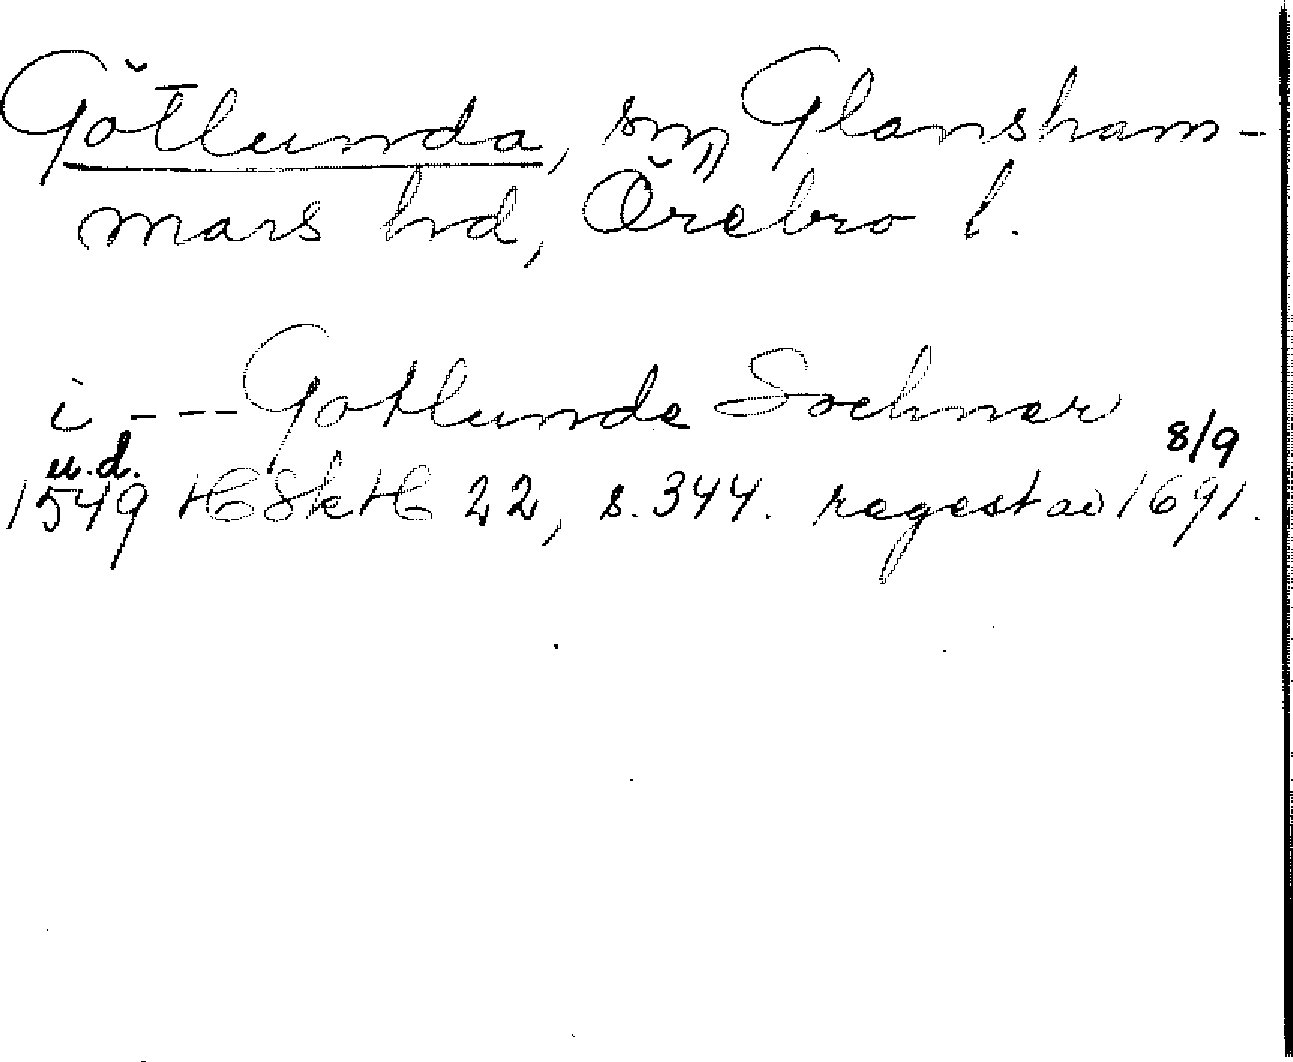 Götlunda, sn, Glansham-
mars hd, Örebro l.
i --- Gotlunde Sochner
u.d. 8/9
1549 HSkH 22, s. 344. regest av 1691.